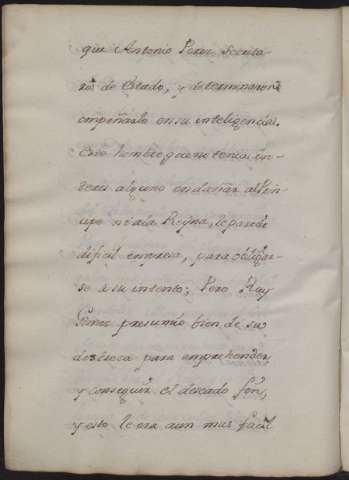 que Antonio Perez Secreta-
rio de Estado, y determinaron
empeñarlo en su inteligencia.
Este hombre que no tenia in-
teres alguno en dañar al Prin-
cipe ni a la Reyna, le pareció
dificil empresa, para obligar-
se a su intento; Pero Ruy
Gomez presumió bien de su
destreza para emprehender,
y conseguir el deseado fin,
y esto le era aun mas facil